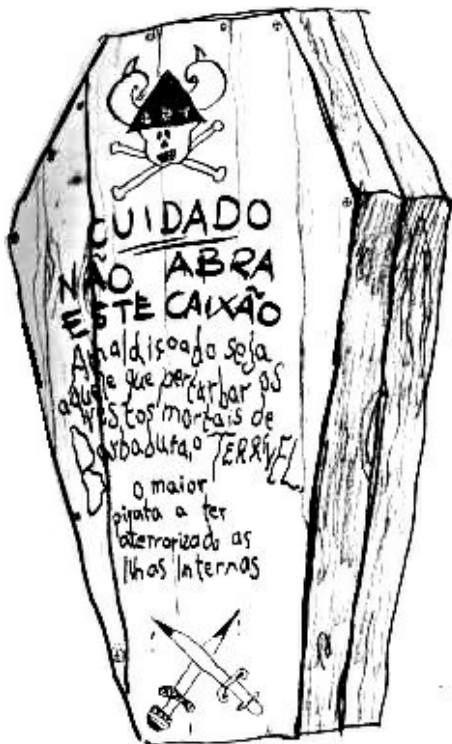 CUIDADO
NÃO ABRA
ESTE CAIXÃO
Amaldiçoado seja
aquele que perturbar os
restos mortais de
Barbadura, o TERRÍVEL,
o maior
pirata a ter
aterrorizado as
Ilhas Internas